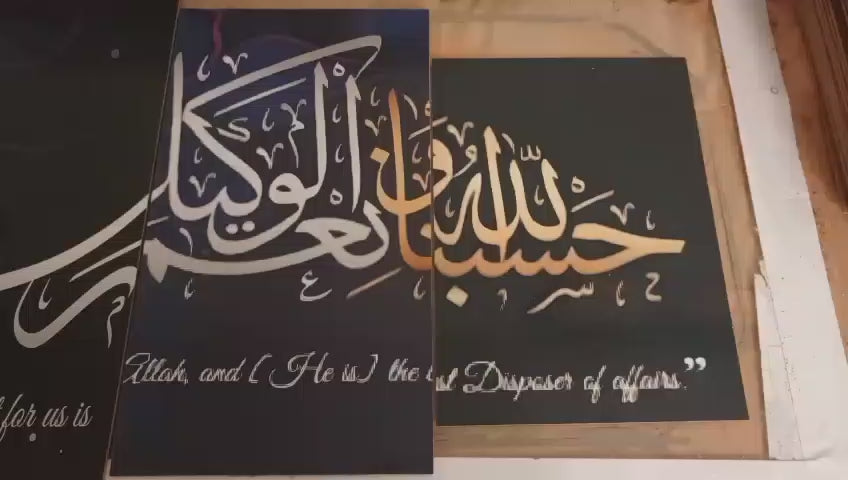 حسبنا الله ونعم الوكيل
t for us is Allah, and [He is] the st Disposer of affairs.”